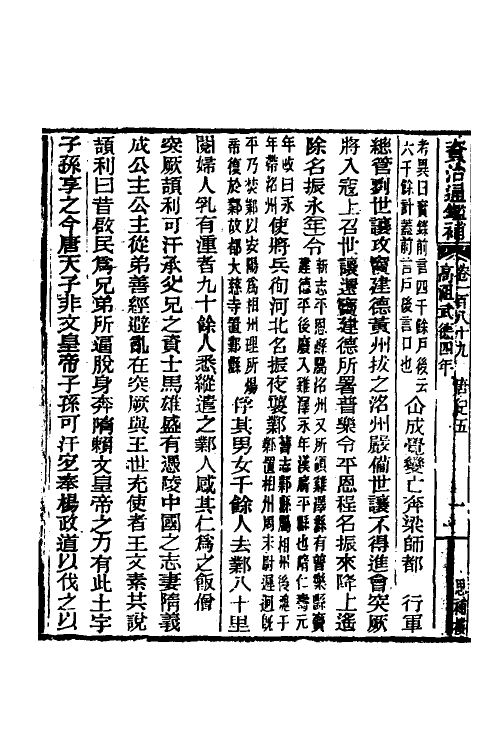 資治通鑑補 卷一百八十九 高祖武德四年 唐紀五 一 思補樓
考異曰實錄前言四千餘戶後云六千餘計蓋前言戶後言口也 㒶成覺變亡奔梁師都 行軍
總管劉世讓攻竇建德黃州拔之洺州嚴備世讓不得進會突厥
將入寇上召世讓還竇建德所署普樂令平恩程名振來降上遙
除名振永年令 新志平恩縣屬洺州又所領雞澤縣有普樂縣竇建德平後廢入雞澤永年漢廣平縣也隋仁壽元年改曰永年帶洺州 使將兵徇河北名振夜襲鄴 舊志鄴縣屬相州後魏于鄴置相州周末尉遲迥旣平乃焚鄴以安陽爲相州理所煬帝復於鄴故都大慈寺置鄴縣 俘其男女千餘人去鄴八十里
閱婦人乳有湩者九十餘人悉縱遣之鄴人感其仁爲之飯僧
突厥頡利可汗承父兄之資士馬雄盛有憑陵中國之志妻隋義
成公主公主從弟善經避亂在突厥與王世充使者王文素共說
頡利曰昔啟民爲兄弟所逼脫身奔隋賴文皇帝之力有此土宇
子孫享之今唐天子非文皇帝子孫可汗宜奉楊政道以伐之以